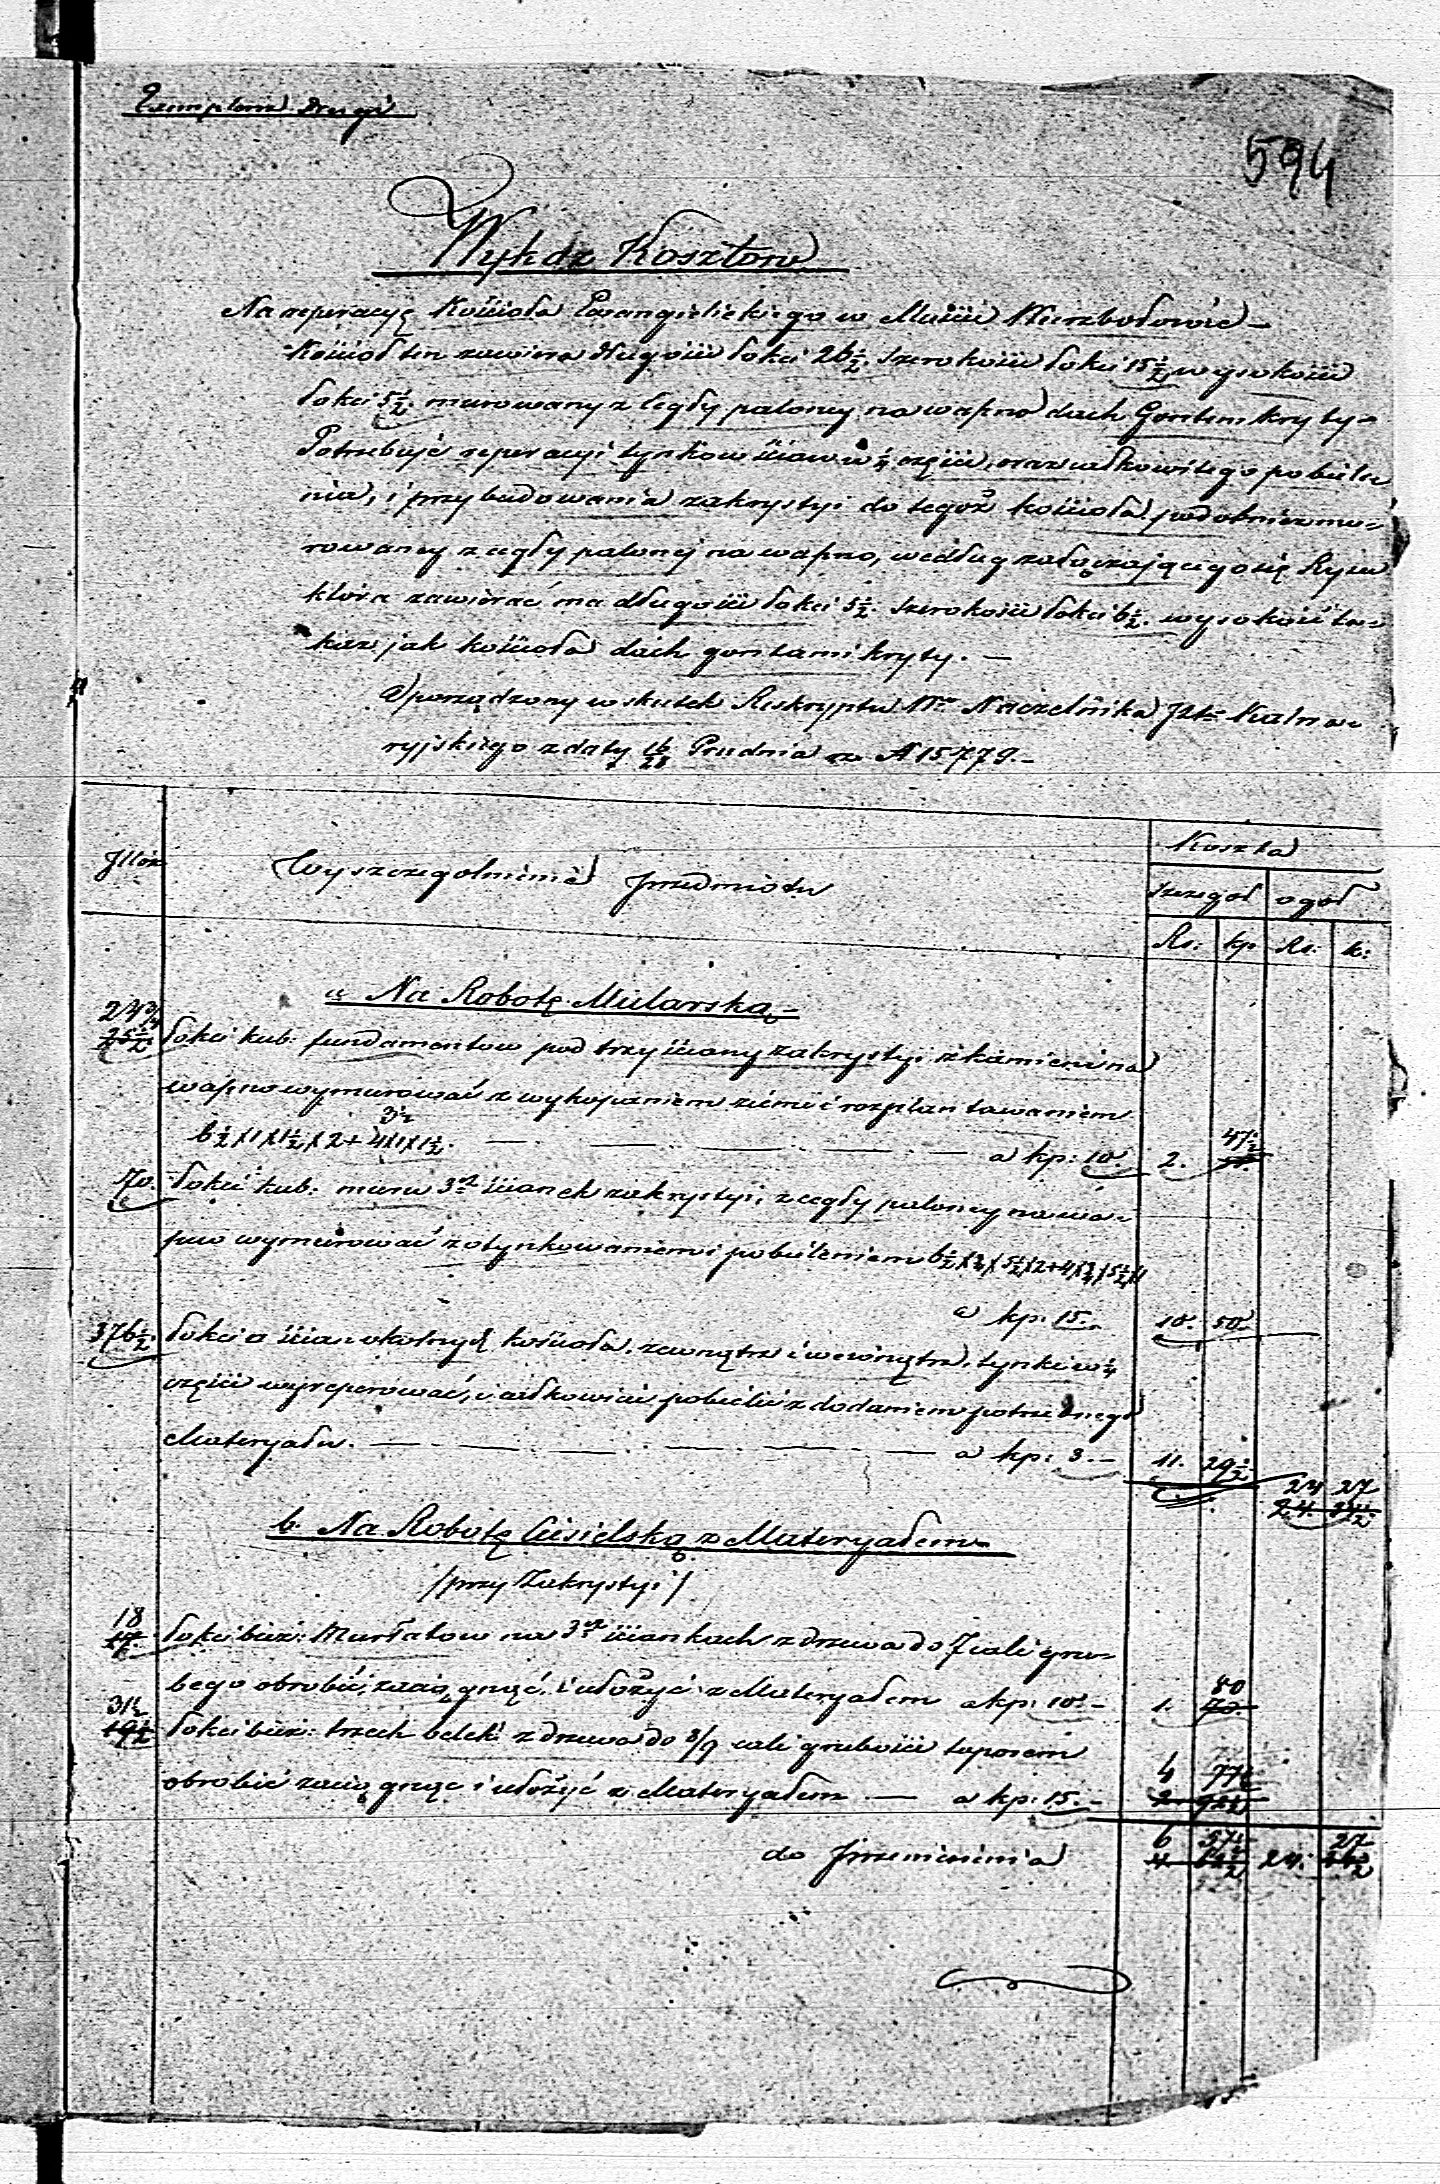 Exemplarz drugi
594
Wykaz Kosztow
Na reperacyę Kościoła Ewangielickiego w Mieście Wierzbołowie –
Kościoł ten zawiera długości łokci 26½. szerokości łokci 15½ wysokości
łokci 5½. murowany z Cegły paloney na wapno dach Gontem kryty –
Potrzebuje reperacyi tynkow ścian w ¼ części, oraz całkowitego pobiele
nia, i przybudowania zakrystyi do tegoż kościoła podobnież mu-
rowaney z cegły palonej na wapno, według załączającego się Rysu
która zawierać ma długości łokci 5½. szerokości łokci 6½. wysokość ta-
każ jak kościoła dach gontami kryty. –
Sporządzony w skutek Reskryptu Naczelnika Ptu Kalwa-
ryjskiego z daty 16/28 Grudnia N 15779. –
Illość
Wyszczególnienie przedmiotu
Koszta
szczegoł ogoł
Rs. kp Rs. k:
a Na Robotę Mularską –
24¾
25½ łokci kub: fundamentow pod trzy ściany zakrystyi z kamieni na
wapno wymurować z wykopaniem ziemi i rozplantowaniem
3½
6½ X 1 X 1½ X 2 + 4 X 1 X 1½. – a kp: 10. 2. 47½
70. łokci kub: muru 3ch ścianek zakrystyi z cegły paloney na wa-
pno wymurować z otynkowaniem i pobieleniem 6½ X ¾ X 5½ X 2 + 4 X ¾ X 5½ X 1
a kp. 15. 10. 50
376½ łokci □ ścian okolnych kościoła, zewnątrz i wewnątrz, tynki w ¼
części wyreperować, i całkowicie pobielić z dodaniem potrzebnego
Materyału. – a kp: 3. – 11. 29½
24 27
24.
b. Na Robotę Ciesielską z Materyałem
/przy Zakrystyi/
18
17. łokci bież: Murłatow na 3ch ściankach z drzewa do 7 cali gru-
bego obrobić, zaciągnąć, i ułożyć z Materyałem a kp: 10. – 1. 80
70.
31½
19½ łokci bież: trzech belek z drzewa do 8/9 cali grubości toporem
obrobić zaciągnąć i ułożyć z Materyałem – a kp: 15. – 4 77½
2 92½
do Przeniesienia 6 57½ 24. 27
4 62½